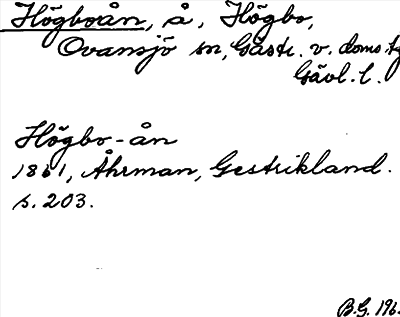 Högboån, å, Högbo,
Ovansjö sn, Gästr. v. doms.
Gävl. l.
Högbo-ån
1861, Åhrman, Gestrikland.
s. 203.
B.G. 196